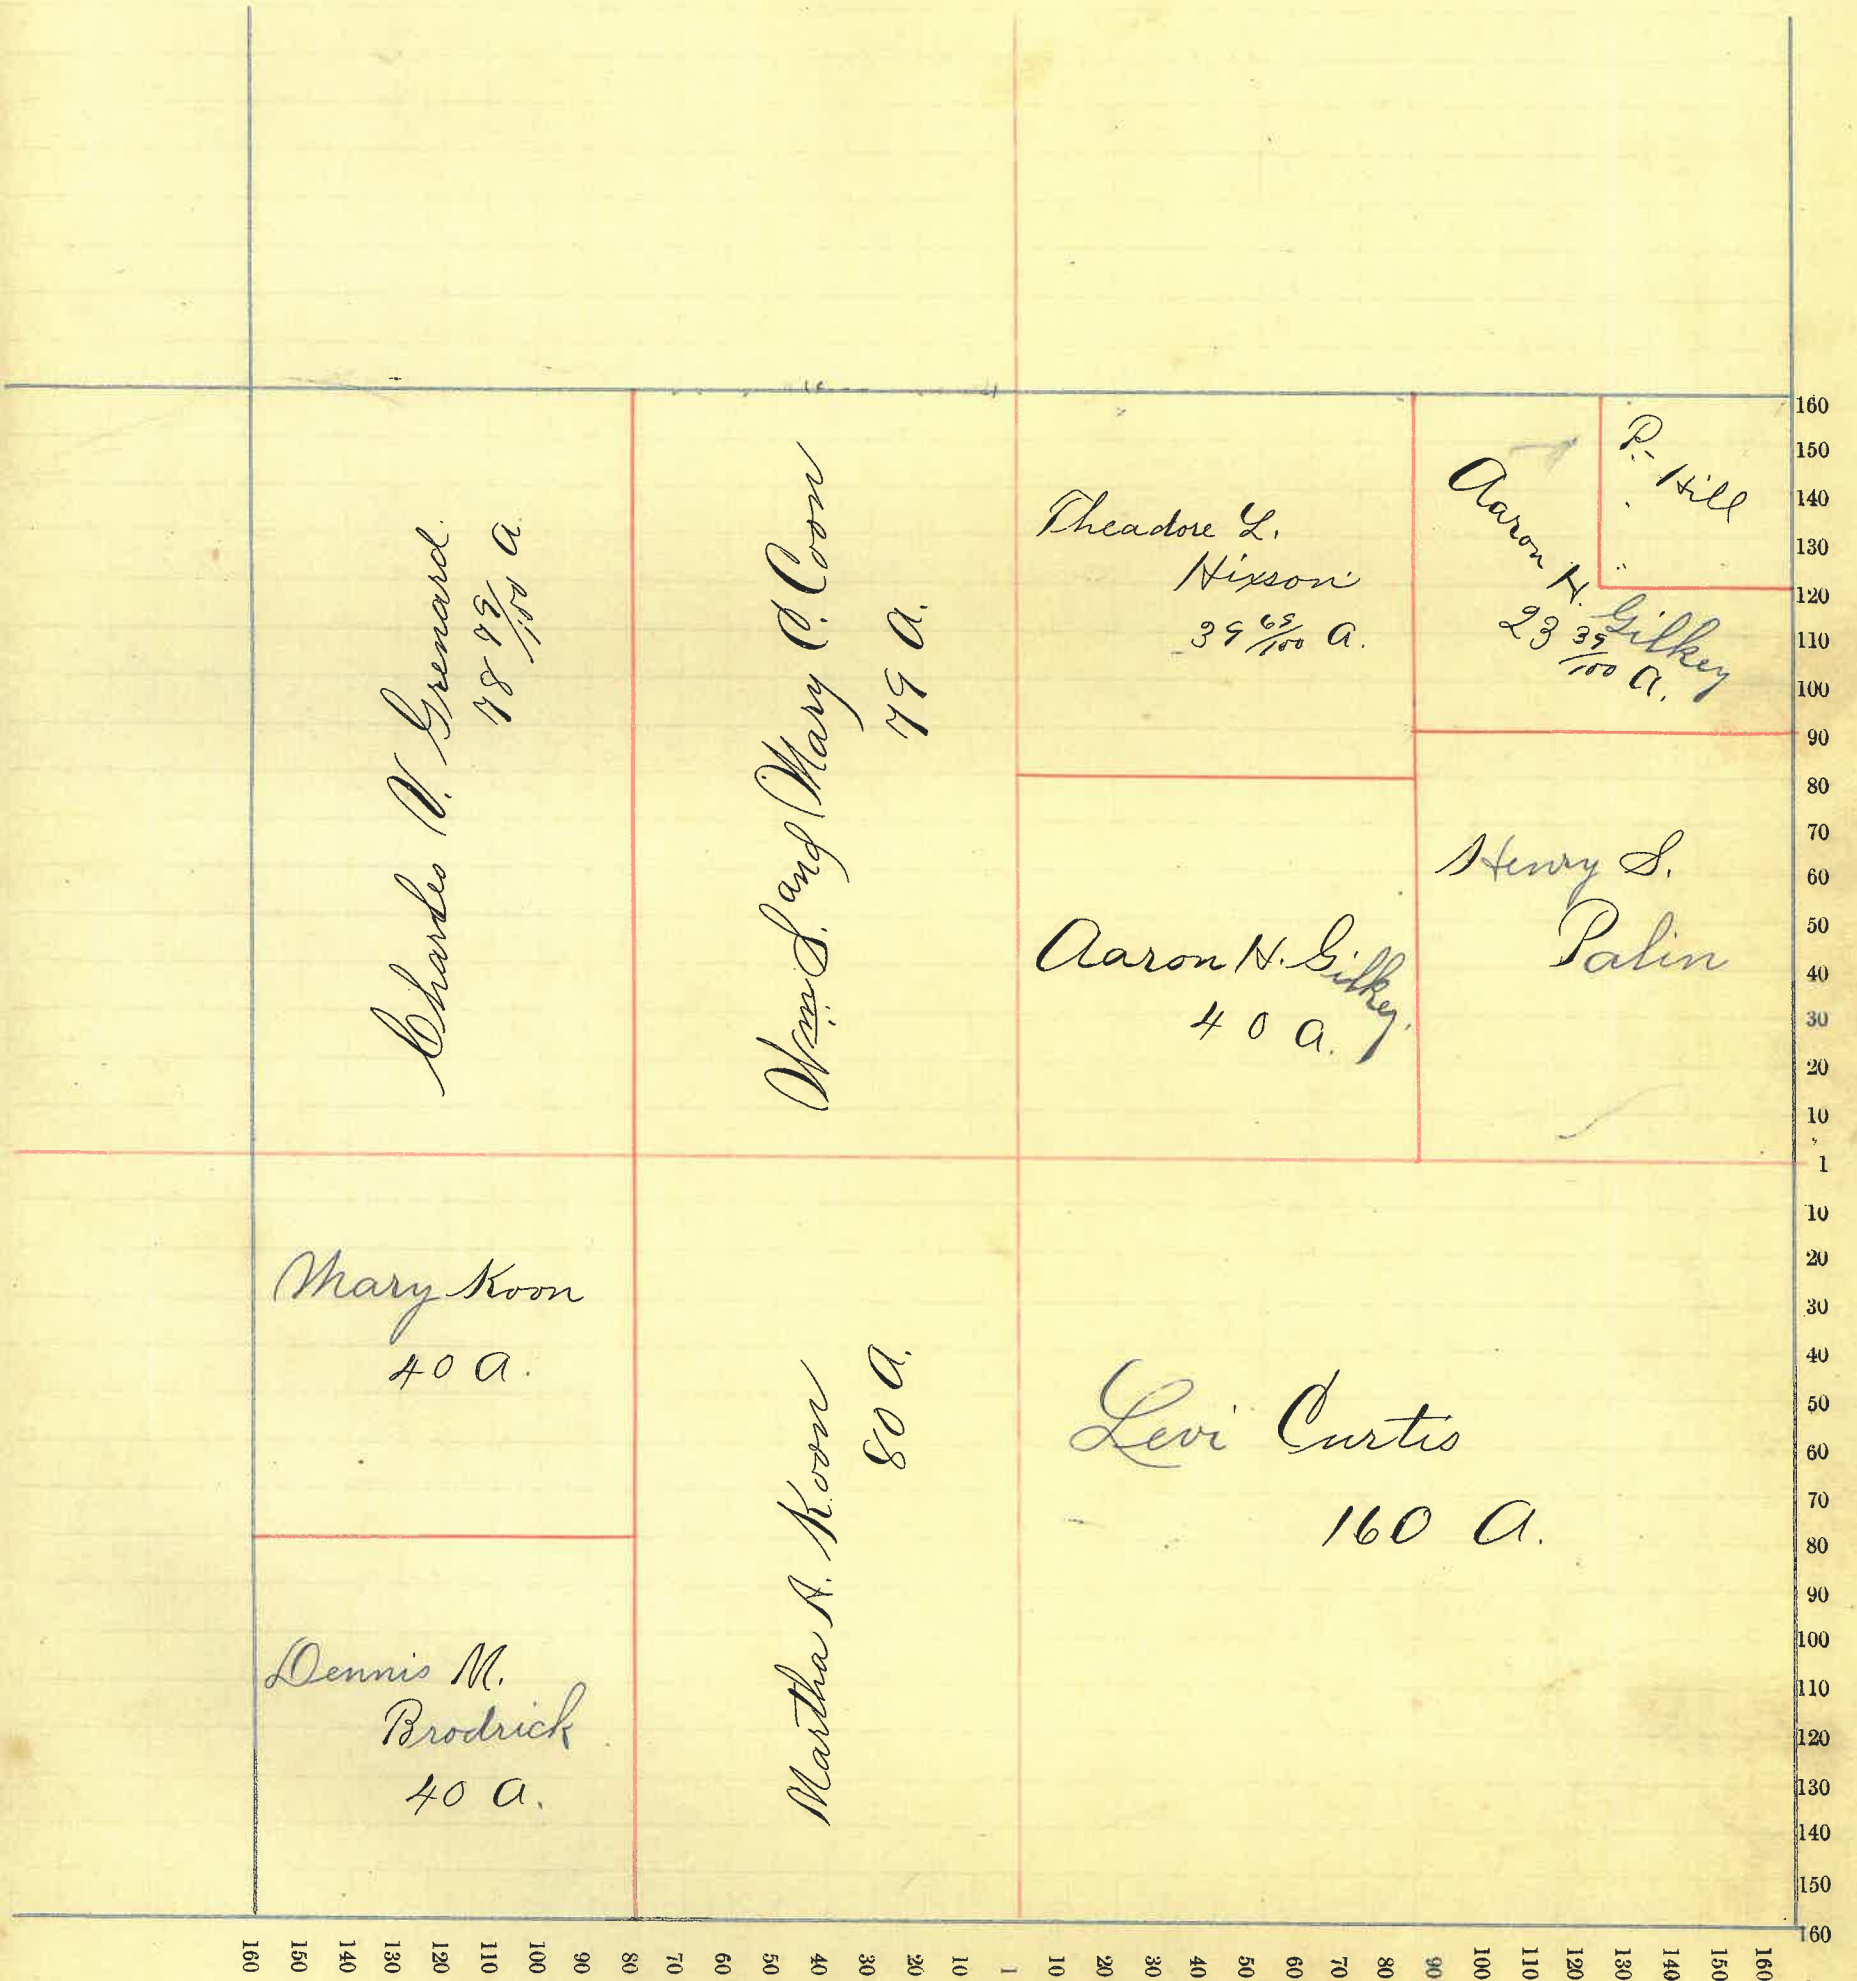 Charles V. Grenard.
78 79/100 A
Wm S. and Mary C. Coon
79 A.
Theadore L.
Hixson
39 69/100 A.
Aaron H. Gilkey
23 39/100 A.
P. Hill
Aaron H. Gilkey.
40 A.
Henry S.
Palin
Mary Koon
40 A.
Dennis M.
Brodrick
40 A.
Martha A. Koon
80 A.
Levi Curtis
160 A.
160
150
140
130
120
110
100
90
80
70
60
50
40
30
20
10
1
10
20
30
40
50
60
70
80
90
100
110
120
130
140
150
160
160 150 140 130 120 110 100 90 80 70 60 50 40 30 20 10 1 10 20 30 40 50 60 70 80 90 100 110 120 130 140 150 160